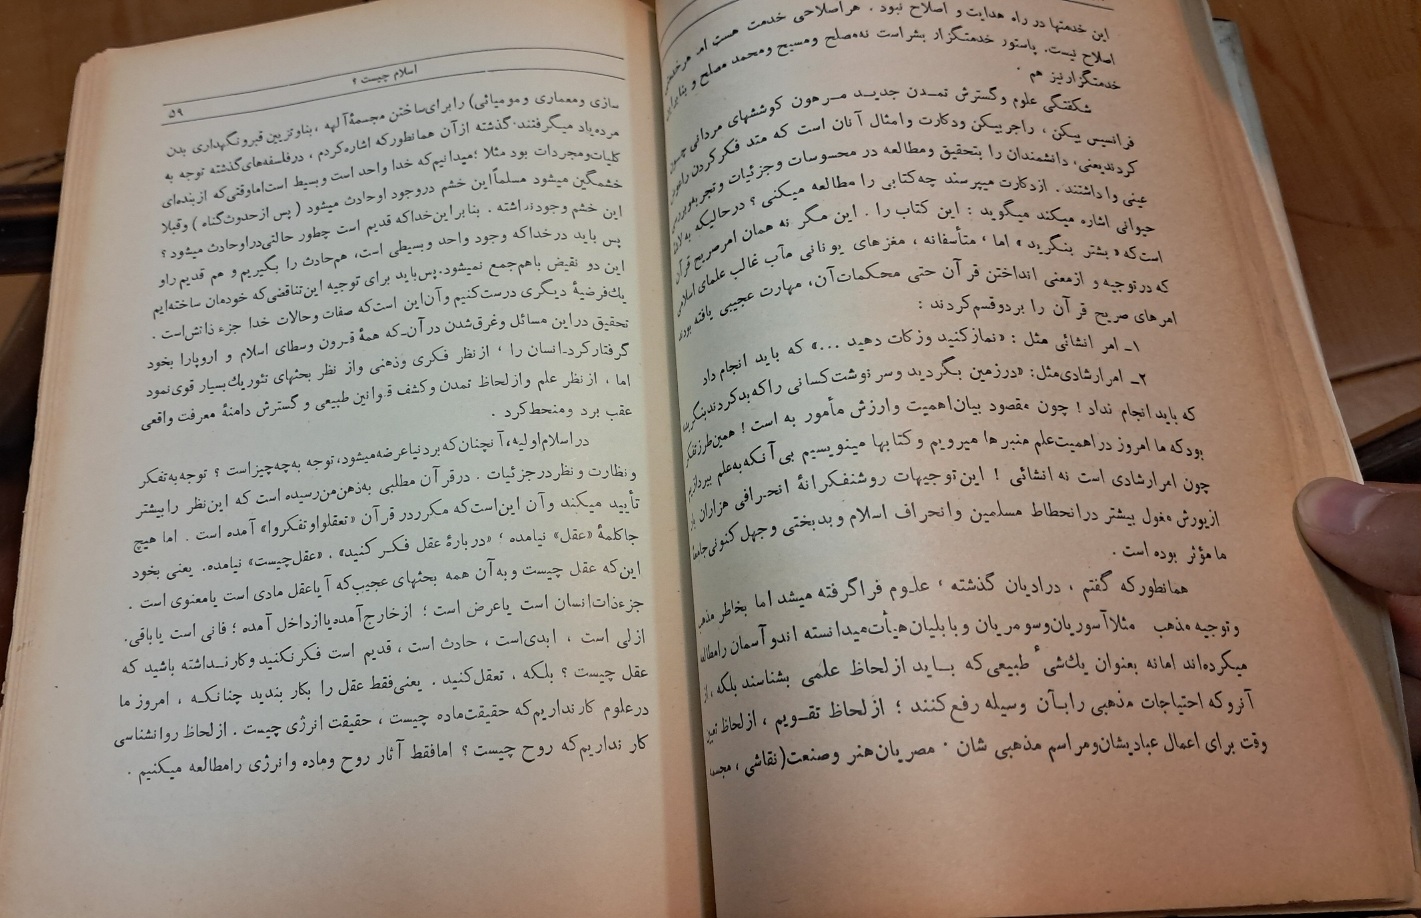 این خدمتها در راه هدایت و اصلاح نبود . هر اصلاحی خدمت هست اما هر خدمتی
اصلاح نیست. پاستور خدمتگزار بشر است نه مصلح و مسیح و محمد مصلح و بنابراین
خدمتگزار نیز هم .
شکفتگی علوم و گسترش تمدن جدید مرهون کوششهای مردانی چون
فرانسیس بیکن ، راجر بیکن و دکارت و امثال آنان است که متد فکر کردن را عوض
کردند یعنی، دانشمندان را بتحقیق و مطالعه در محسوسات و جزئیات و تجربه و بررسی
عینی وا داشتند . از دکارت میپرسند چه کتابی را مطالعه میکنی ؟ در حالیکه به لاشهٔ
حیوانی اشاره میکند میگوید : این کتاب را . این مگر نه همان امر صریح قرآن
است که « بشتر بنگرید » اما ، متأسفانه ، مغزهای یونانی مآب غالب علمای اسلامی
که در توجیه و از معنی انداختن قرآن حتی محکمات آن، مهارت عجیبی یافته بودند
امرهای صریح قرآن را بر دو قسم کردند :
۱ـ امر انشائی مثل : «نماز کنید و زکات دهید ...» که باید انجام داد
۲ـ امر ارشادی مثل: «در زمین بگردید و سرنوشت کسانی را که بد کردند بنگرید»
که باید انجام نداد ! چون مقصود بیان اهمیت و ارزش مأمور به است ! همین طرز تفکر
بود که ما امروز در اهمیت علم منبرها میرویم و کتابها مینویسیم بی آنکه به علم بپردازیم
چون امر ارشادی است نه انشائی ! این توجیهات روشنفکرانهٔ انحرافی هزاران بار
از یورش مغول بیشتر در انحطاط مسلمین و انحراف اسلام و بدبختی و جهل کنونی جامعهٔ
ما مؤثر بوده است .
همانطور که گفتم ، در ادیان گذشته ، علوم فرا گرفته میشد اما بخاطر مذهب
و توجیه مذهب مثلا آسوریان و سومریان و بابلیان هیأت میدانسته اند و آسمان را مطالعه
میکرده اند اما نه بعنوان یك شیء طبیعی که باید از لحاظ علمی بشناسند بلکه ، از
آنرو که احتیاجات مذهبی را بآن وسیله رفع کنند ؛ از لحاظ تقویم ، از لحاظ تعیین
وقت برای اعمال عبادیشان و مراسم مذهبی شان . مصریان هنر و صنعت (نقاشی ، مجسمه
اسلام چیست ؟
۵۹
سازی و معماری و مومیائی) را برای ساختن مجسمهٔ آلهه ، بنا و تزیین قبر و نگهداری بدن
مرده یاد میگرفتند. گذشته از آن همانطور که اشاره کردم ، در فلسفه‌های گذشته توجه به
کلیات و مجردات بود مثلا ؛ میدانیم که خدا واحد است و بسیط است اما وقتی که از بنده‌ای
خشمگین میشود مسلماً این خشم در وجود او حادث میشود ( پس از حدوث گناه ) و قبلا
این خشم وجود نداشته . بنابراین خدا که قدیم است چطور حالتی در او حادث میشود ؟
پس باید در خدا که وجود واحد و بسیطی است، هم حادث را بگیریم و هم قدیم را و
این دو نقیض باهم جمع نمیشود. پس باید برای توجیه این تناقضی که خودمان ساخته‌ایم
یك فرضیهٔ دیگری درست کنیم و آن این است که صفات و حالات خدا جزء ذاتش است .
تحقیق در این مسائل و غرق شدن در آن ـ که همهٔ قرون وسطای اسلام و اروپا را بخود
گرفتار کرد ـ انسان را ، از نظر فکری و ذهنی و از نظر بحثهای تئوریك بسیار قوی نمود
اما ، از نظر علم و از لحاظ تمدن و کشف قوانین طبیعی و گسترش دامنهٔ معرفت واقعی
عقب برد و منحط کرد .
در اسلام اولیه، آنچنان که بر دنیا عرضه میشود، توجه به چه چیز است ؟ توجه به تفکر
و نظارت و نظر در جزئیات . در قرآن مطلبی به ذهن من رسیده است که این نظر را بیشتر
تأیید میکند و آن این است که مکرر در قرآن «تعقلوا و تفکروا» آمده است . اما هیچ
جا کلمهٔ «عقل» نیامده ؛ «دربارهٔ عقل فکر کنید» . «عقل چیست» نیامده. یعنی بخود
این که عقل چیست و به آن همه بحثهای عجیب که آیا عقل مادی است یا معنوی است .
جزء ذات انسان است یا عرض است ؛ از خارج آمده یا از داخل آمده ؛ فانی است یا باقی.
ازلی است ، ابدی است ، حادث است ، قدیم است فکر نکنید و کار نداشته باشید که
عقل چیست ؟ بلکه ، تعقل کنید . یعنی فقط عقل را بکار بندید چنانکه ، امروز ما
در علوم کار نداریم که حقیقت ماده چیست ، حقیقت انرژی چیست . از لحاظ روانشناسی
کار نداریم که روح چیست ؟ اما فقط آثار روح و ماده و انرژی را مطالعه میکنیم .